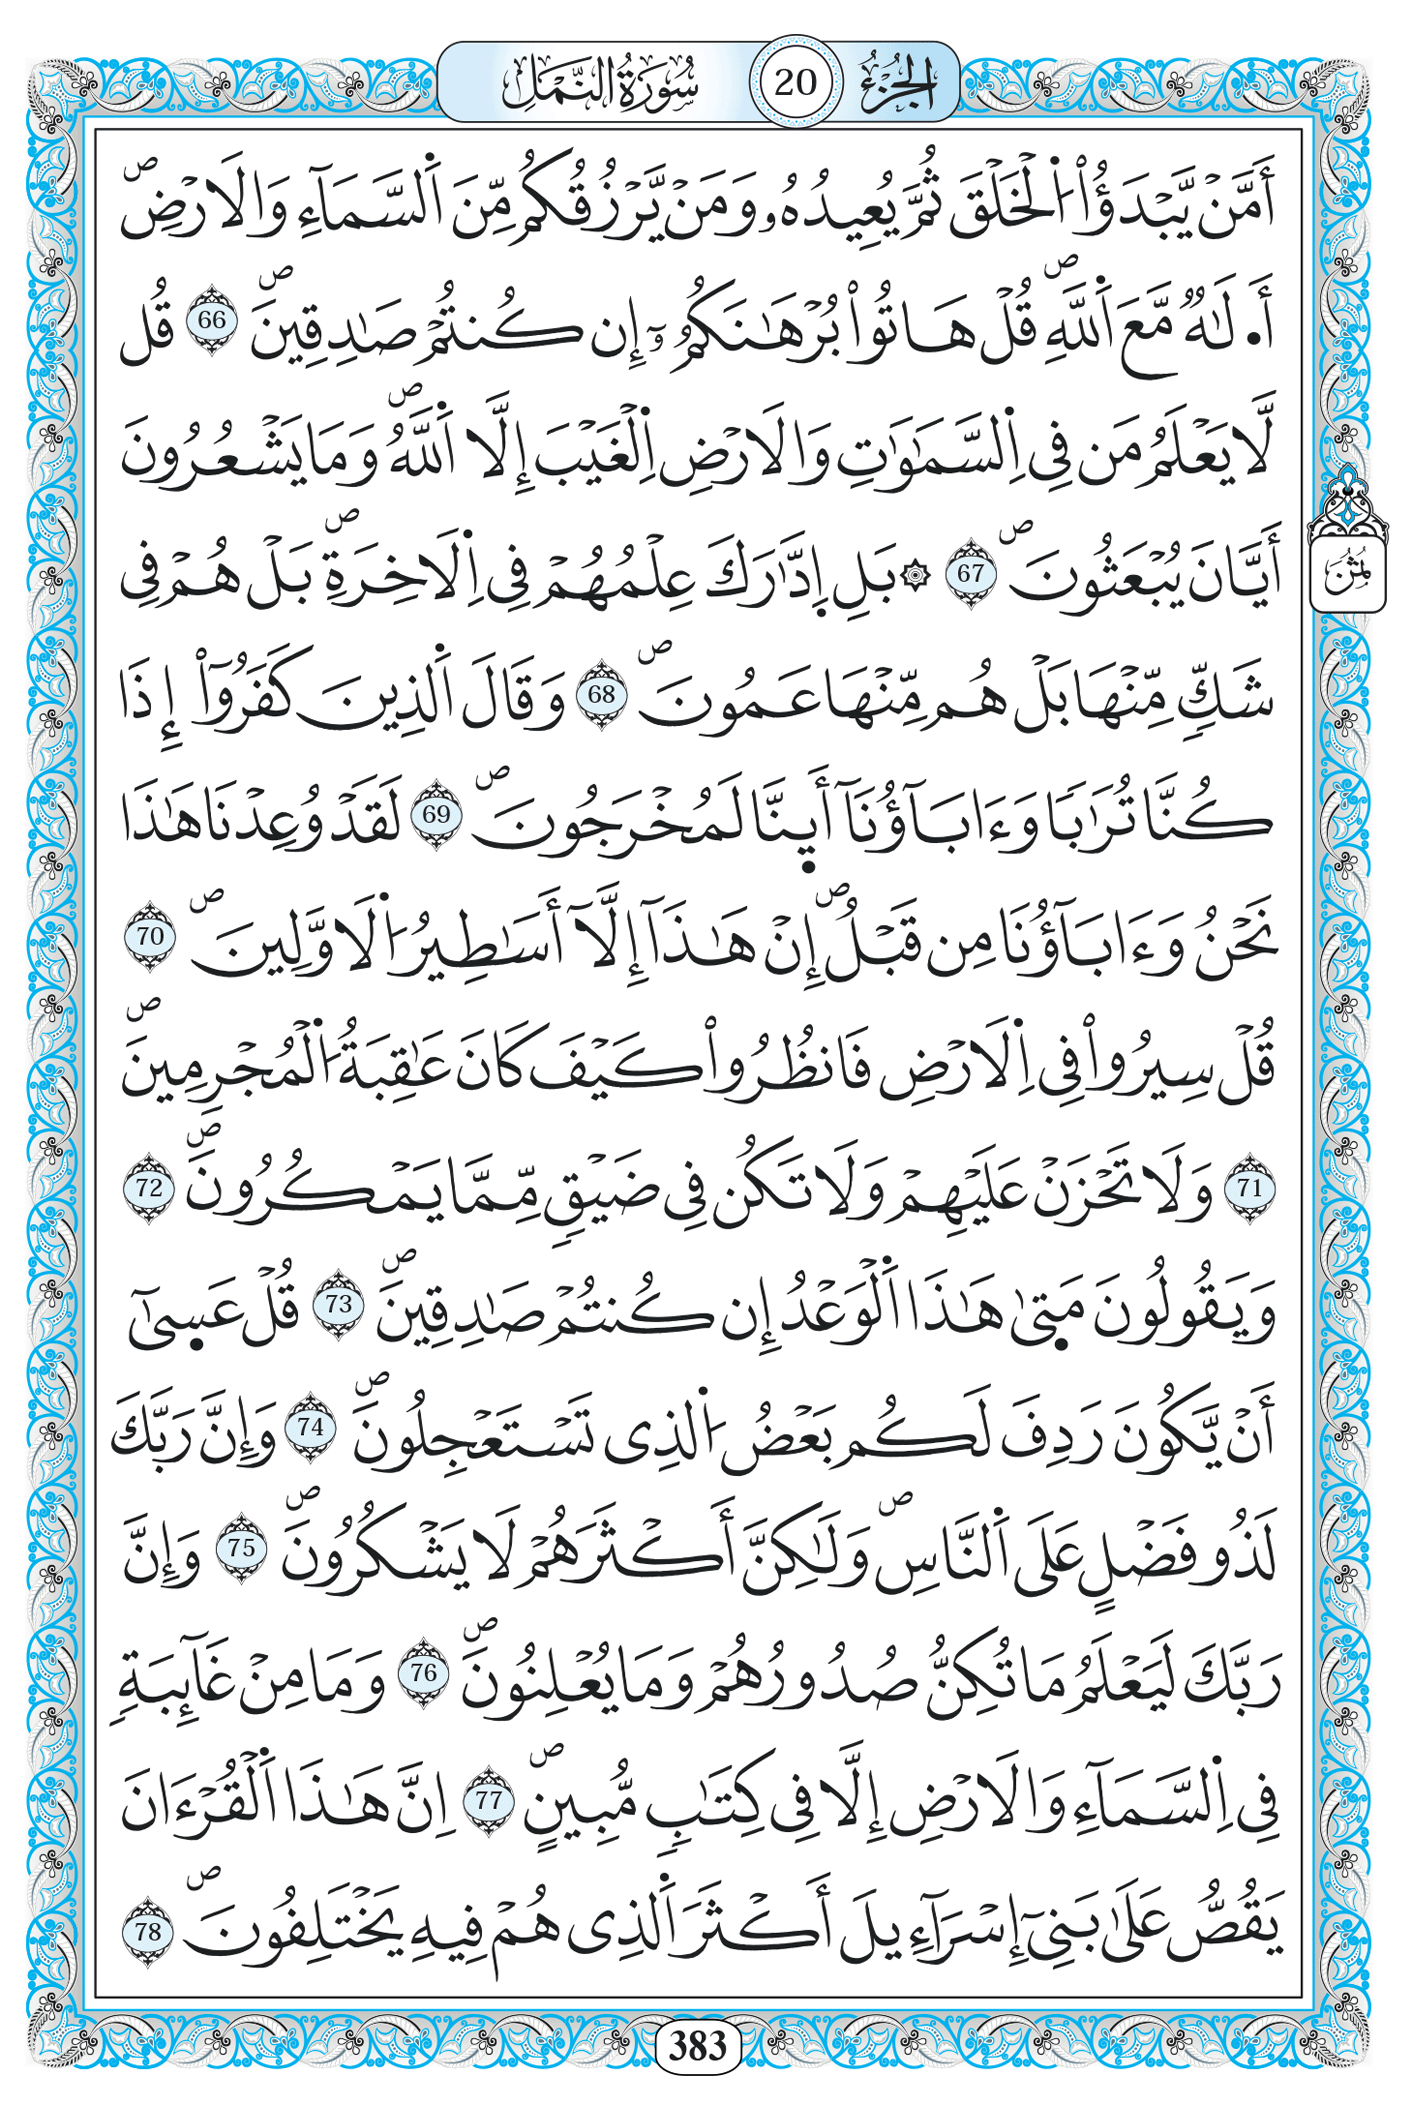 الجزء 20 سورة النمل
أَمَّنْ يَّبْدَؤُاْ اُ۬لْخَلْقَ ثُمَّ يُعِيدُهُۥ وَمَنْ يَّرْزُقُكُم مِّنَ اَ۬لسَّمَآءِ وَالَارْضِۖ
أَ.لَٰهٞ مَّعَ اَ۬للَّهِۖ قُلْ هَاتُواْ بُرْهَٰنَكُمُۥٓ إِن كُنتُمْ صَٰدِقِينَۖ 66 قُل
لَّا يَعْلَمُ مَن فِى اِ۬لسَّمَٰوَٰتِ وَالَارْضِ اِ۬لْغَيْبَ إِلَّا اَ۬للَّهُۖ وَمَا يَشْعُرُونَ
أَيَّانَ يُبْعَثُونَۖ 67 ۞ بَلِ اِ۪دَّٰرَكَ عِلْمُهُمْ فِى اِ۬لَاخِرَةِۖ بَلْ هُمْ فِى
شَكّٖ مِّنْهَا بَلْ هُم مِّنْهَا عَمُونَۖ 68 وَقَالَ اَ۬لذِينَ كَفَرُوٓاْ إِذَا
كُنَّا تُرَٰباٗ وَءَابَآؤُنَآ أَي۪نَّا لَمُخْرَجُونَۖ 69 لَقَدْ وُعِدْنَا هَٰذَا
نَحْنُ وَءَابَآؤُنَا مِن قَبْلُۖ إِنْ هَٰذَآ إِلَّآ أَسَٰطِيرُ اُ۬لَاوَّلِينَۖ 70
قُلْ سِيرُواْ فِى اِ۬لَارْضِ فَانظُرُواْ كَيْفَ كَانَ عَٰقِبَةُ اُ۬لْمُجْرِمِينَۖ
71 وَلَا تَحْزَنْ عَلَيْهِمْ وَلَا تَكُن فِى ضَيْقٖ مِّمَّا يَمْكُرُونَۖ 72
وَيَقُولُونَ مَت۪ىٰ هَٰذَا اَ۬لْوَعْدُ إِن كُنتُمْ صَٰدِقِينَۖ 73 قُلْ عَس۪ىٰٓ
أَنْ يَّكُونَ رَدِفَ لَكُم بَعْضُ اُ۬لذِى تَسْتَعْجِلُونَۖ 74 وَإِنَّ رَبَّكَ
لَذُو فَضْلٍ عَلَى اَ۬لنَّاسِۖ وَلَٰكِنَّ أَكْثَرَهُمْ لَا يَشْكُرُونَۖ 75 وَإِنَّ
رَبَّكَ لَيَعْلَمُ مَا تُكِنُّ صُدُورُهُمْ وَمَا يُعْلِنُونَۖ 76 وَمَا مِنْ غَآئِبَةٖ
فِى اِ۬لسَّمَآءِ وَالَارْضِ إِلَّا فِى كِتَٰبٖ مُّبِينٍۖ 77 اِنَّ هَٰذَا اَ۬لْقُرْءَانَ
يَقُصُّ عَلَىٰ بَنِىٓ إِسْرَآءِيلَ أَكْثَرَ اَ۬لذِى هُمْ فِيهِ يَخْتَلِفُونَۖ 78
ثُمُن
383